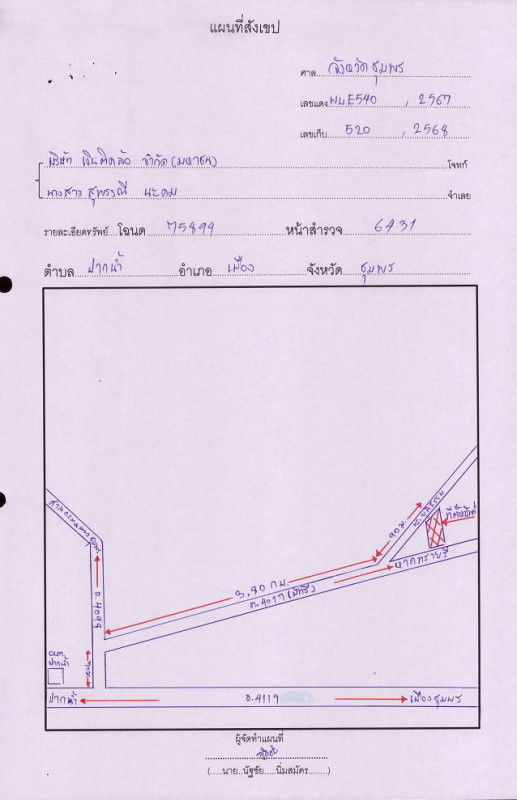 แผนที่สังเขป
ศาล จังหวัดชุมพร
เลขแดง ผบ.E540 , 2567
เลขเก็บ 520 , 2568
บริษัท เงินติดล้อ จำกัด (มหาชน) โจทก์
นางสาว สุพรรณี นะคม จำเลย
รายละเอียดทรัพย์ โฉนด 75899 หน้าสำรวจ 6431
ตำบล ปากน้ำ อำเภอ เมือง จังหวัด ชุมพร
ที่ตั้งทรัพย์
90 ม.
หาดทรายรี
3.80 กม.
ถ.4098
อบต.
ปากน้ำ
ปากน้ำ
ถ.4119
เมืองชุมพร
ผู้จัดทำแผนที่
(....นาย..นัฐชัย.....นิ่มสมัคร........)